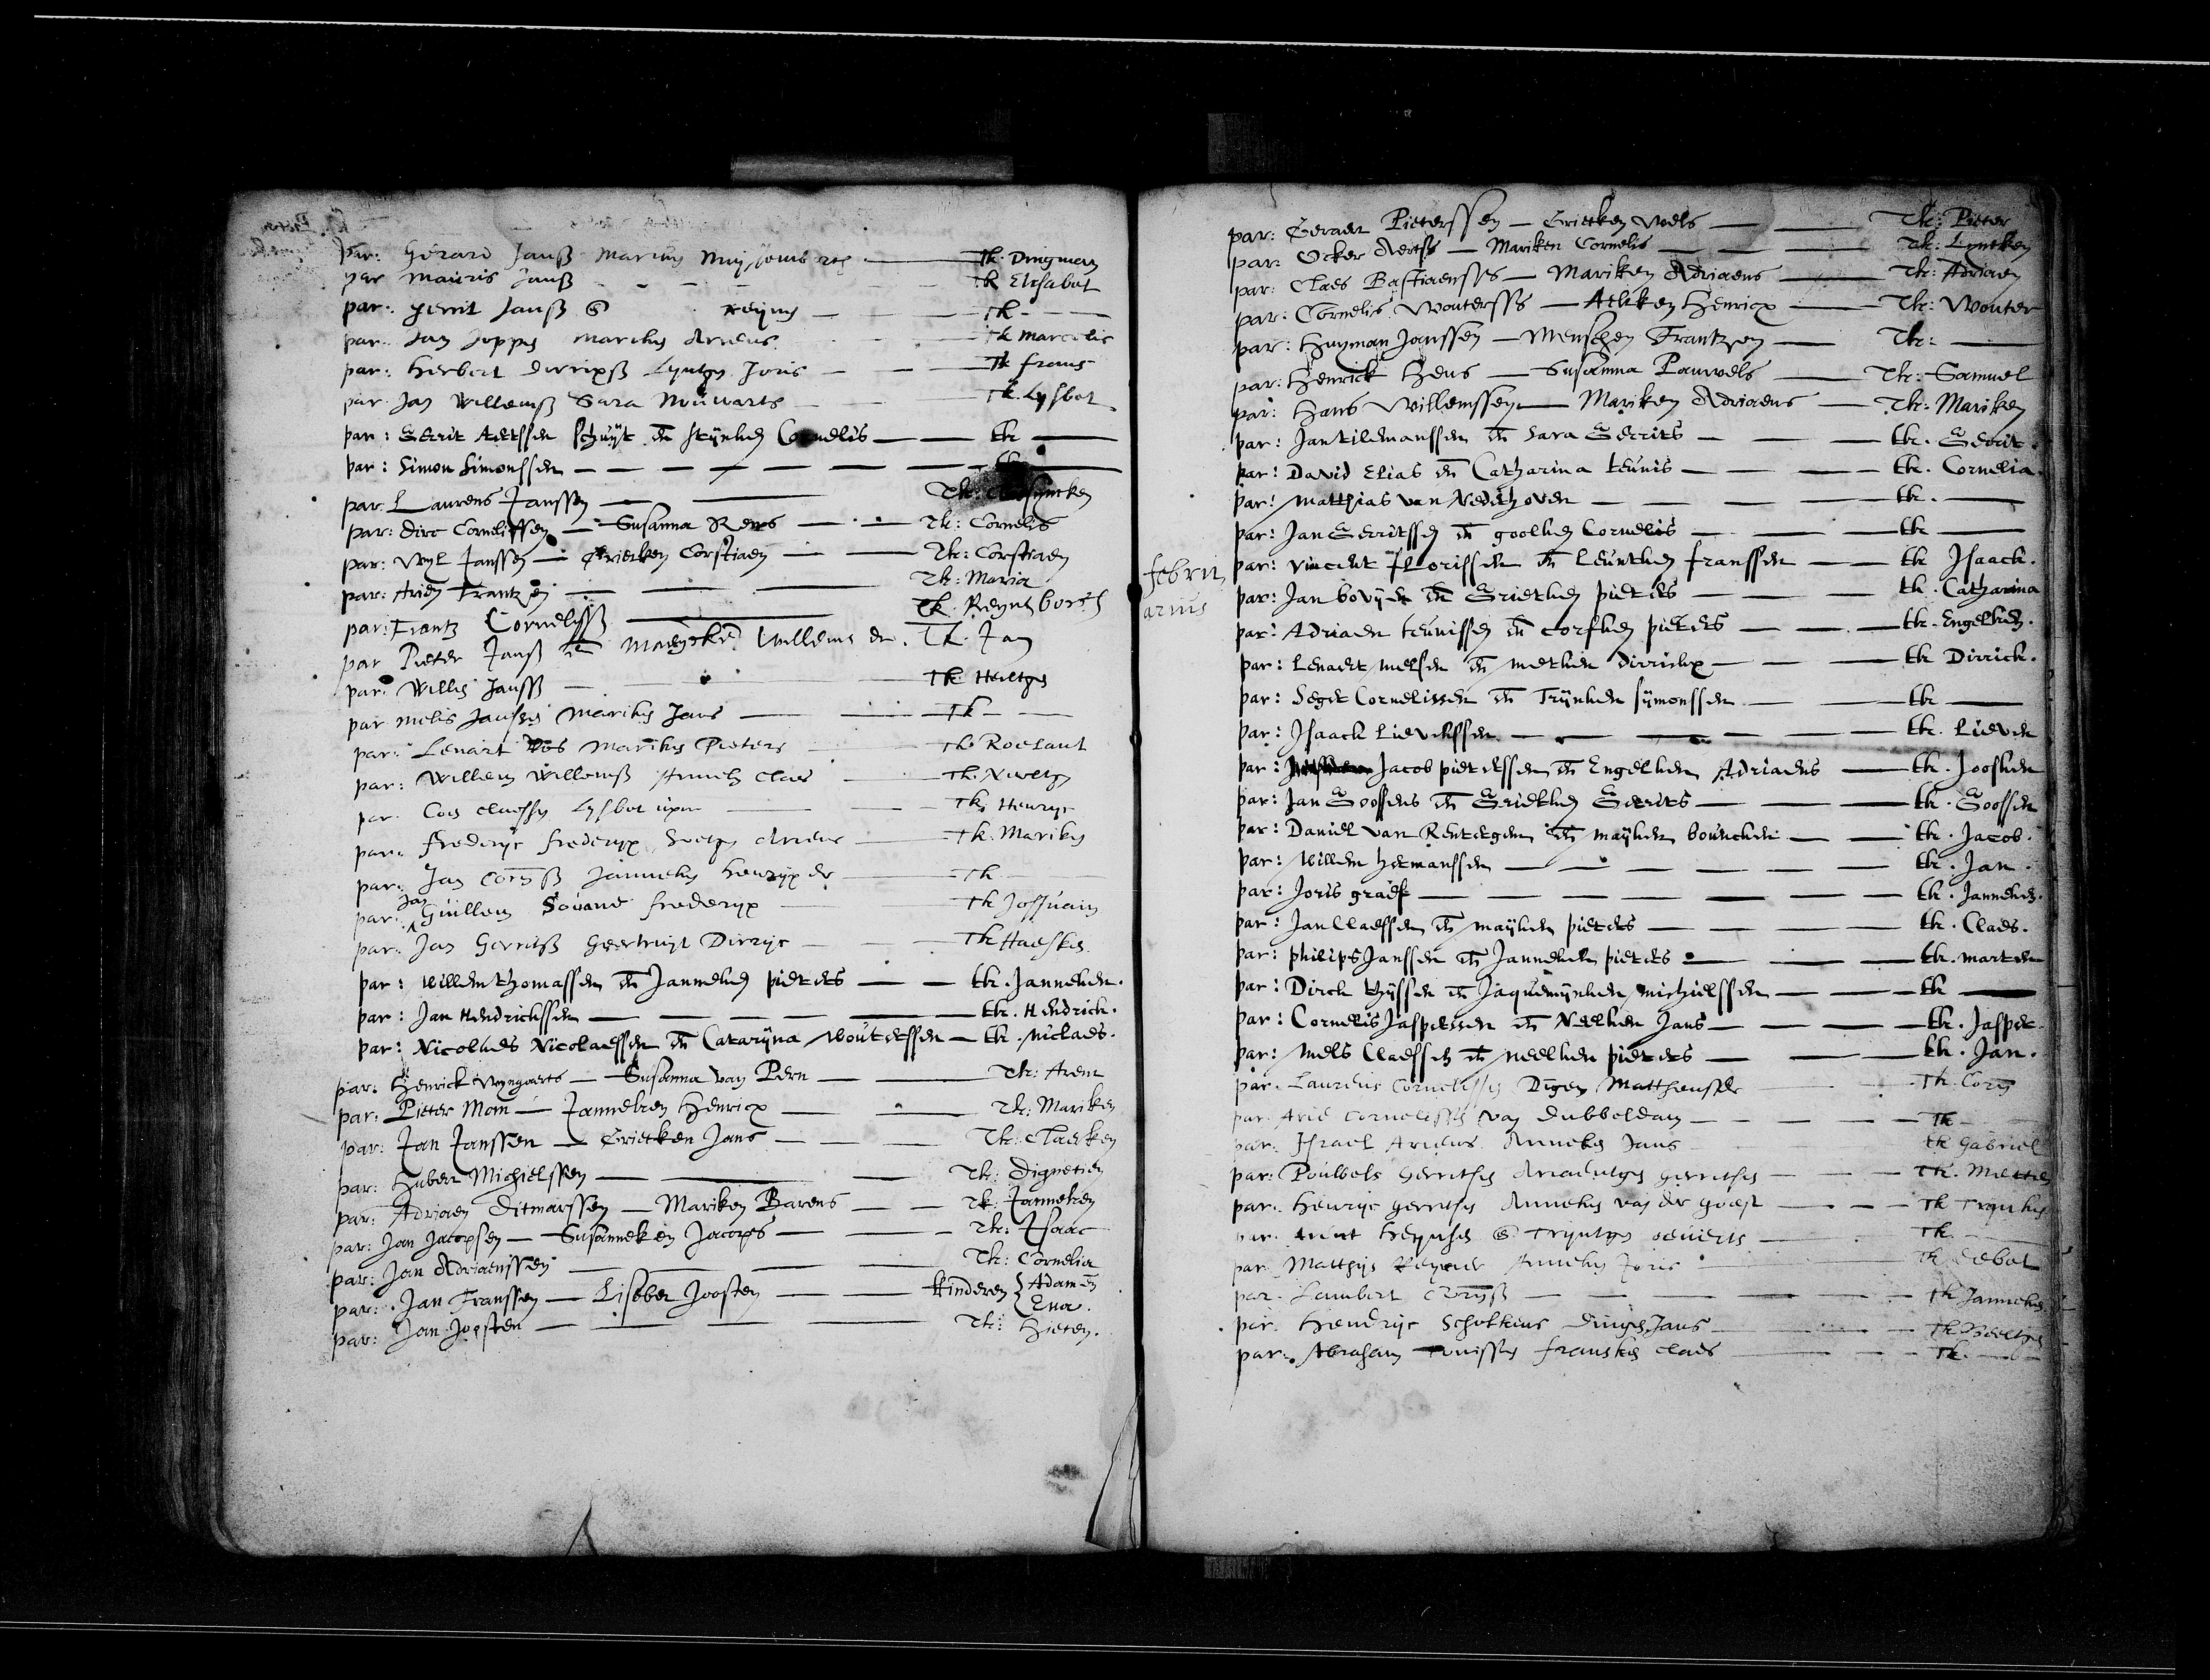 par: Gerard Janß Th. Dingman
par Mauris Janß Th Elisabet
par. gerrit Janß Th
par. Jan Joppen Mariken Ariens Th Marcelis
par: Herbert Dirrixß Lyntgen Joris Th frans
par. Jan Willemß Sara Th. Lysbet
par: Gerrit Aertssen schuijt en stijnken Cornelis tk
par: Simon Simonssen tk
par: Laurens Janssen Th:
par: Dirc Cornelissen — Susanna Th: Cornelis
par: Wyl Janssen — Grietken Corstiaen Th: Corstiaen
par: Arien Frantzen Th: Maria
par: Frantz Cornelisß Th.
par Pieter Janß en Willems Th. Jan
par. Willem Janß Th
par Melis Janssen Mariken Jans Th
par: Lenart Vos Mariken Pieters Th. Roelant
par: Willem Willemß Claes Th. Neeltgen
par. Cors Claessen Lysbet Th. Henryc
par. frederyc frederyx Ariens Th. Mariken
par. Jan Corß Janneken Henryx Th.
par. Jan Guillem frederyx Th
par. Jan Gerritß Geertruyt Dirryc Th Haesken
par: Willem thomassen en Janneken pieters tk. Janneken.
par: Jan Hendrickssen tk. Hendrick.
par: Nicolaes Nicolaessen en Catarijna Woutersssen tk. Niclaes.
par: Henrick Wyngaerts — Susanna van Pern Th: Arent
par: Pieter Mom — Janneken Henricx Th: Mariken
par: Jan Janssen — Grietken Jans Th: Claesken
par: Hubert Michielssen Th: Dignetien
par: Adriaen Ditmarssen — Mariken Barens Th: Janneken
par: Jan Jacopsen — Susanneken Jacops Th: Isaac
par: Jan Adriaenssen Th: Cornelia
par: Jan Franssen — Lisebet Joosten kinderen { Adam en Eva.
par: Jan Joosten Th: Pieter.
par: Geraert Pieterssen — Grietken Th: Pieter
par: Ocker Aertss — Mariken Cornelis Th: Lyncken
par: Claes Bastiaenss — Mariken Adriaens Th: Adriaen
par: Cornelis Wouterss — Aelken Henricx Th: Wouter
par: Huyman Janssen — Menschen Frantzen Th:
par: Henrick Hens — Susanna Pauwels Th: Samuel
par: Hans Willemssen — Mariken Adriaens Th: Mariken
par: Jan tilemanssen en Sara Gerrits tk. Gerrit.
par: David Elias en Catharina teunis tk. Cornelia.
par: Matthias van Nederhoven tk.
par: Jan Gerritssen en goolken Cornelis tk
februarius
par: Vincent florissen en Leuntken franssen tk Isaack.
par: Jan en Grietken pieters tk. Catharina
par: Adriaen teunissen en pieters tk. Engelken.
par: Lenaert Melsen en Metken dirrickx tk Dirrick.
par: Seger Cornelissen en Trijnken symonssen tk
par: Isaack Lievenssen tk. Lieven
par: Jacob pieterssen en Engelken Adriaens tk. Joosken
par: Jan Goossens en Grietken Gerrits tk. Goossen
par: Daniel van Rentergem en Mayken tk. Jacob.
par: Willem hermanssen tk. Jan
par: Joris graef tk. Janneken.
par: Jan Claessen en mayken pieters tk. Claes.
par: philips Janssen en Janneken pieters tk. marten
par: Dirck thyssen en Jaquemynken Michielssen tk
par: Cornelis Jasperssen en Neelken Jans tk. Jasper.
par: Mels Claessen en Neelken pieters tk. Jan.
par. Laurens Cornelissen Digen Mattheusse Th. Corn
par. Arie Cornelissen van Dubbeldam Th
par. Israel Ariens Anneken Jans tk Gabriel
par: Poulwels Gerritsen Ariaentgen gerritsen Th. Metten
par. Henryc gerritsen Anneken van der goest Th Trynken
par. Arent Heynsen Tryntgen Th.
par. Matthys Reynier Anneken Joris Th
par. Lambert Th Janneken
par. Hendryc Scholtens Dingen Jans Th
par. Abraham Tonissen fransken Claes Th.